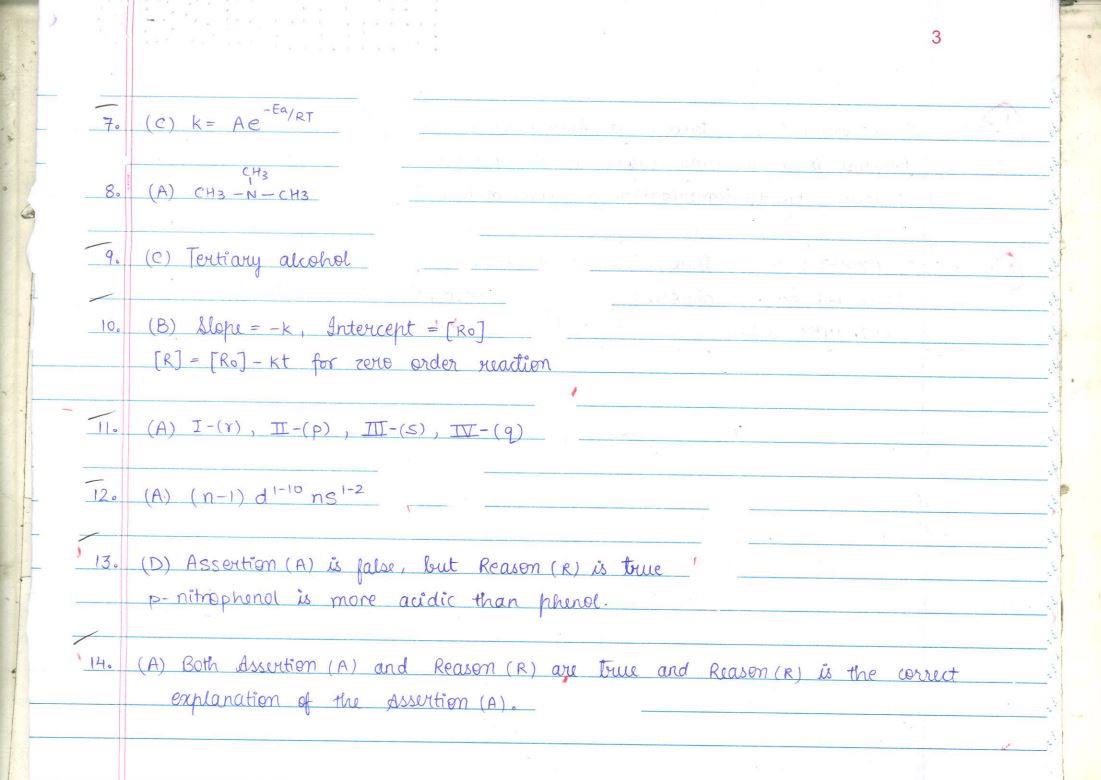 3
7. (C) k = Ae^-Ea/RT
CH3
8. (A) CH3 - N - CH3
9. (C) Tertiary alcohol
10. (B) Slope = -k, Intercept = [R0]
[R] = [R0] - kt for zero order reaction
11. (A) I-(r), II-(p), III-(s), IV-(q)
12. (A) (n-1) d^1-10 ns^1-2
13. (D) Assertion (A) is false, but Reason (R) is true
p-nitrophenol is more acidic than phenol.
14. (A) Both Assertion (A) and Reason (R) are true and Reason (R) is the correct
explanation of the Assertion (A).